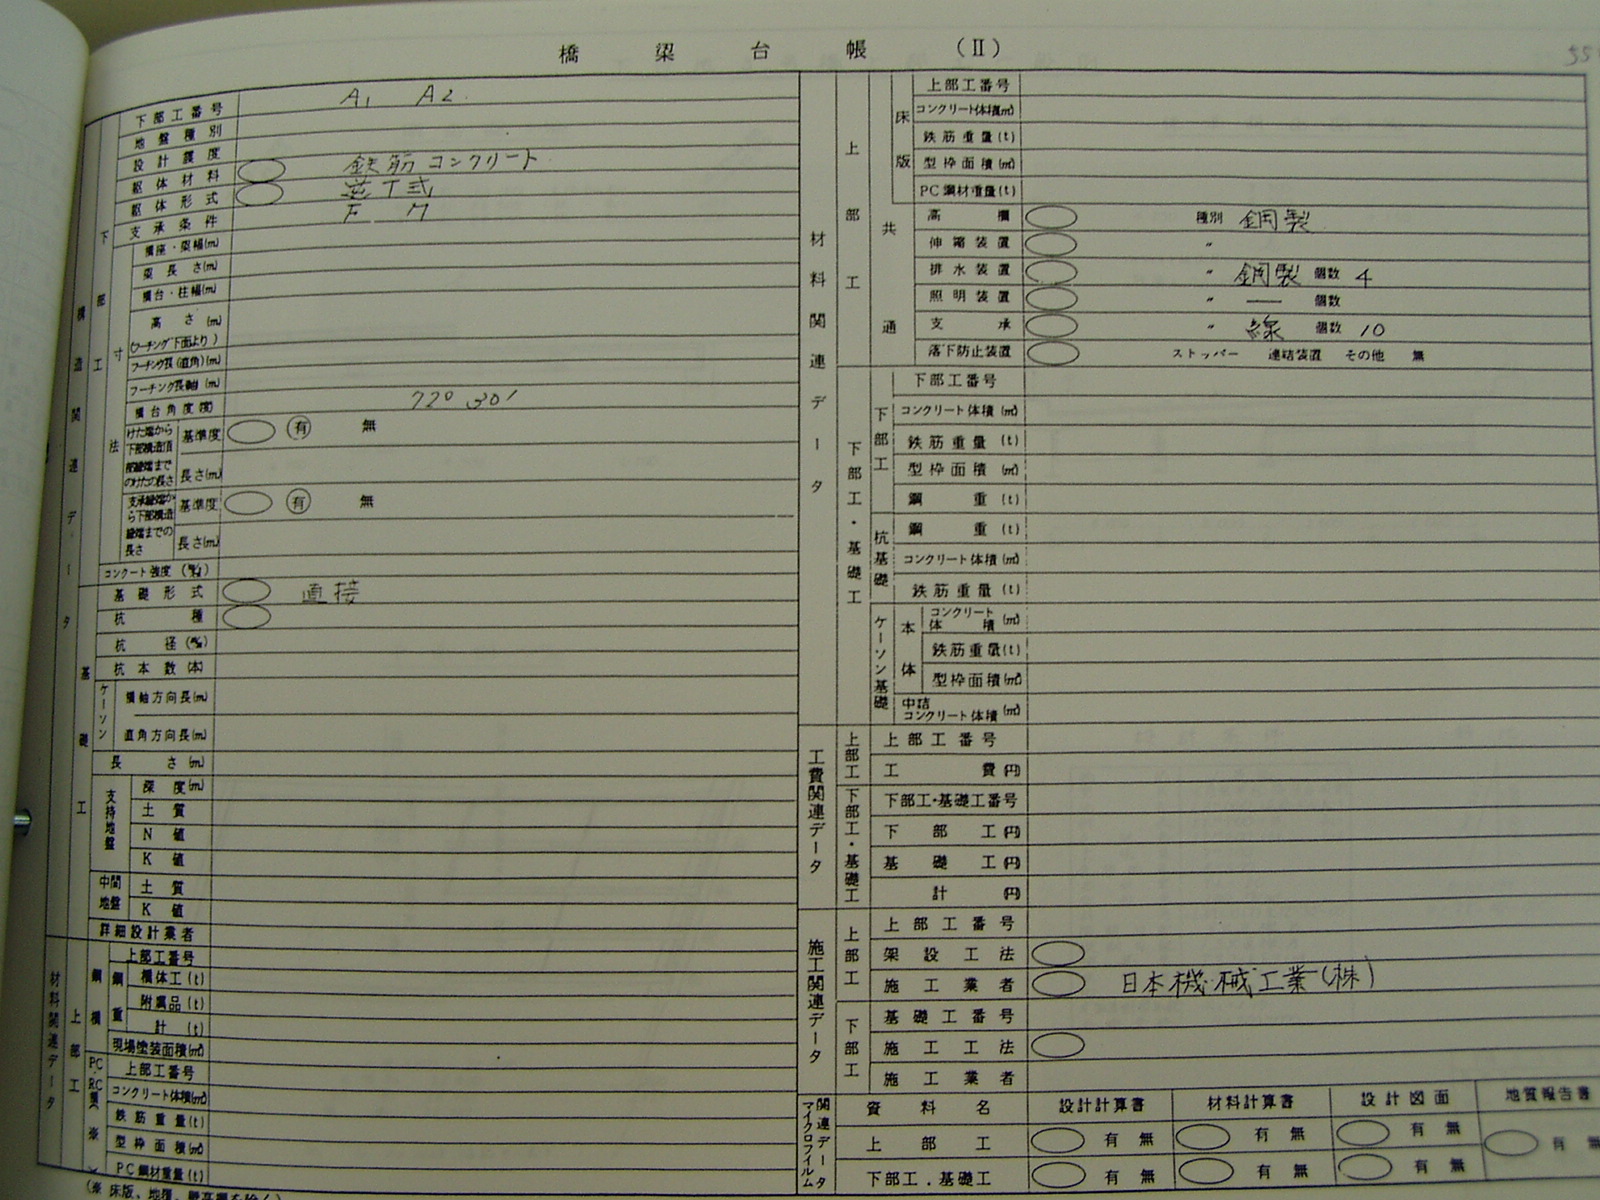 橋梁台帳 (II)
下部工番号 A1 A2
地盤種別
設計震度
躯体材料 鉄筋コンクリート
躯体形式 逆T式
支承条件
橋座・梁幅(m)
梁長さ(m)
橋台・柱幅(m)
高さ(m)
(フーチング下面より)
フーチング長(直角)(m)
フーチング長(軸)(m)
橋台角度(度) 72° 30′
けた端から下部構造頂部縁端までのけたの長さ 基準度 有 無
長さ(m)
支承縁端から下部構造縁端までの長さ 基準度 有 無
長さ(m)
コンクート強度
基礎形式 直接
杭種
杭径
杭本数(本)
ケーソン 橋軸方向長(m)
直角方向長(m)
長さ(m)
支持地盤 深度(m)
土質
N値
K値
中間地盤 土質
K値
詳細設計業者
構造関連データ
下部工
寸法
基礎工
材料関連データ
上部工
鋼橋
鋼重
上部工番号
橋体工(t)
附属品(t)
計(t)
現場塗装面積(㎡)
上部工番号
コンクリート体積(㎥)
鉄筋重量(t)
型枠面積(㎡)
PC鋼材重量(t)
材料関連データ
上部工
床版
上部工番号
コンクリート体積(㎥)
鉄筋重量(t)
型枠面積(㎡)
PC鋼材重量(t)
共通
高欄 種別 鋼製
伸縮装置 〃
排水装置 〃 鋼製 個数 4
照明装置 〃 — 個数
支承 〃 線 個数 10
落下防止装置 ストッパー 連結装置 その他 無
下部工・基礎工
下部工
下部工番号
コンクリート体積(㎥)
鉄筋重量(t)
型枠面積(㎡)
鋼重(t)
杭基礎
鋼重(t)
コンクリート体積(㎥)
鉄筋重量(t)
ケーソン基礎
本体
コンクリート体積(㎥)
鉄筋重量(t)
型枠面積(㎡)
中詰コンクリート体積(㎥)
工費関連データ
上部工
上部工番号
工費(円)
下部工・基礎工
下部工・基礎工番号
下部工(円)
基礎工(円)
計(円)
施工関連データ
上部工
上部工番号
架設工法
施工業者 日本機械工業(株)
下部工
基礎工番号
施工工法
施工業者
関連データマイクロフイルム
資料名 設計計算書 材料計算書 設計図面 地質報告書
上部工 有 無 有 無 有 無 有 無
下部工.基礎工 有 無 有 無 有 無